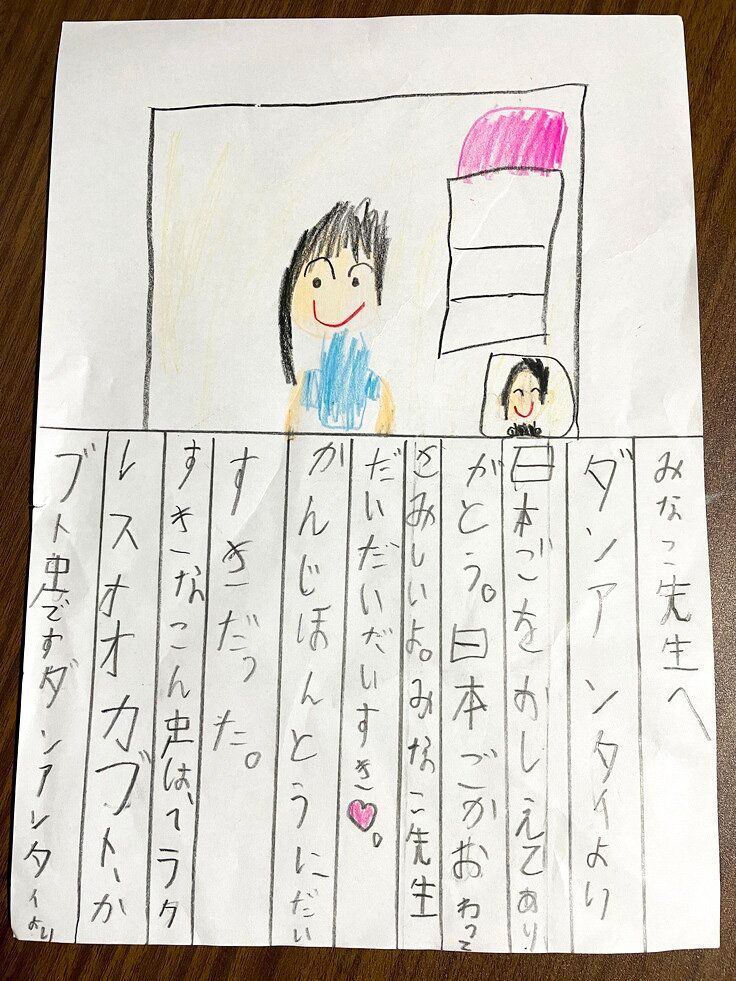 みなこ先生へ
ダンアンタイより
日本ごをおしえてあり
がとう。日本ごがおわって
さみしいよ。みなこ先生
だいだいだいだいすき♥。
かんじほんとうにだい
すきだった。
すきなこん虫は、ヘラク
レスオオカブト、か
ブト虫ですダンアンタイより